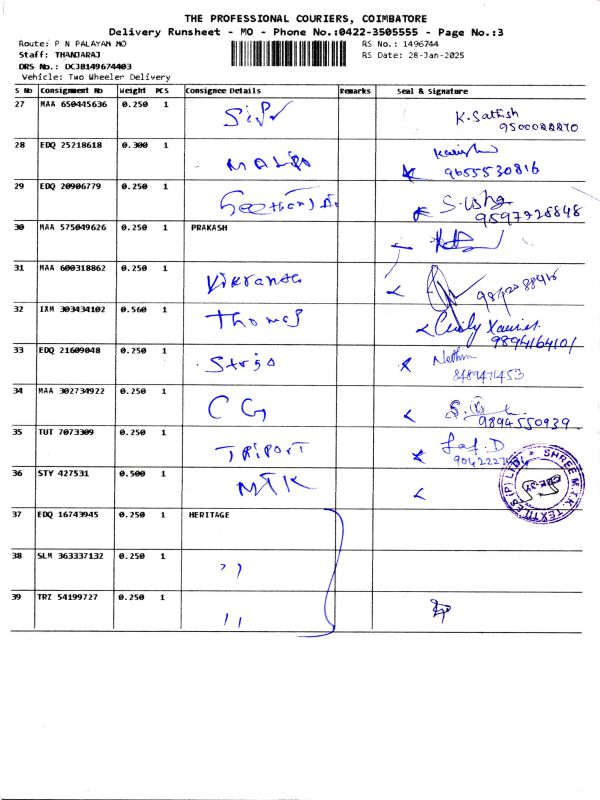 THE PROFESSIONAL COURIERS, COIMBATORE
Delivery Runsheet - MO - Phone No.:0422-3505555 - Page No.:3
Route: P N PALAYAM MO RS No.: 1496744
Staff: THANJARAJ RS Date: 28-Jan-2025
DRS No.: DCJB149674403
Vehicle: Two Wheeler Delivery
S No Consignment No Weight PCS Consignee Details Remarks Seal & Signature
27 MAA 650445636 0.250 1 K. Sathish
28 EDQ 25218618 0.300 1
9655530816
29 EDQ 20906779 0.250 1 S. Usha
9597728848
30 MAA 575049626 0.250 1 PRAKASH
31 MAA 600318862 0.250 1
32 IXM 303434102 0.560 1 Thomas Xavier.
9894164101
33 EDQ 21609048 0.250 1
8489471453
34 MAA 302734922 0.250 1 CG
9894550939
35 TUT 7073309 0.250 1 TRIPORT
36 STY 427531 0.500 1 MTK
SHREE M.T.K. TEXTILES (P) LTD.
37 EDQ 16743945 0.250 1 HERITAGE
38 SLM 363337132 0.250 1 ,,
39 TRZ 54199727 0.250 1 ,,